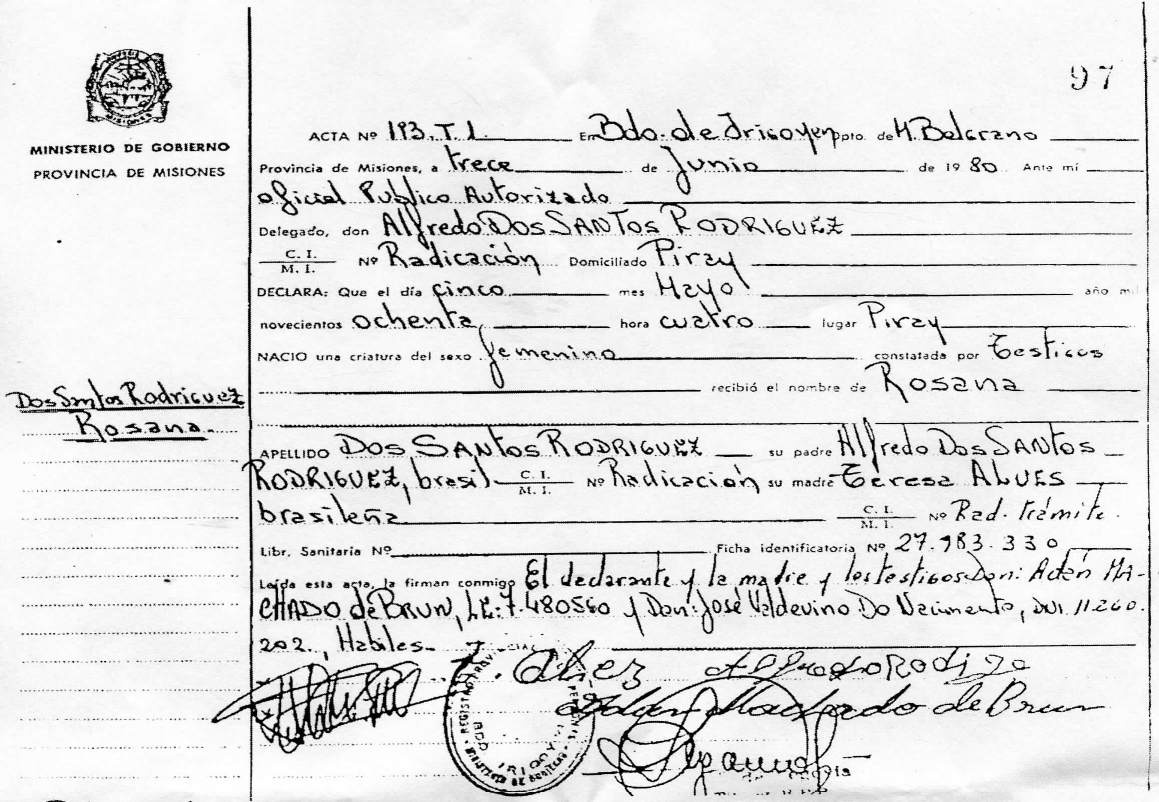 97
MINISTERIO DE GOBIERNO
PROVINCIA DE MISIONES
ACTA Nº 193. T. I. En Bdo. de Irigoyen Dpto. de M. Belgrano
Provincia de Misiones, a trece de Junio de 1980 Ante mi
oficial Publico Autorizado
Delegado, don Alfredo Dos SANTOS RODRIGUEZ
C. I. / M. I. Nº Radicación Domiciliado Piray
DECLARA: Que el día cinco mes Mayo año mil
novecientos ochenta hora cuatro lugar Piray
NACIO una criatura del sexo femenino constatada por Testigos
recibió el nombre de Rosana
Dos Santos Rodriguez
Rosana.
APELLIDO DOS SANTOS RODRIGUEZ su padre Alfredo Dos SANTOS
RODRIGUEZ, brasil. C. I. / M. I. Nº Radicación su madre Teresa ALVES
brasileña C. I. / M. I. Nº Rad. trámite.
Libr. Sanitaria Nº Ficha identificatoria Nº 27.983.330
Leída esta acta, la firman conmigo El declarante y la madre y los testigos Don: Adán MA-
CHADO de BRUN, L.E: 7.480560 y Don: José Valdevino Do Nacimento, DNI. 11.260.
202., Habiles.
Adan Machado de Brun
REGISTRO PROVINCIAL
BDO. IRIGOYEN